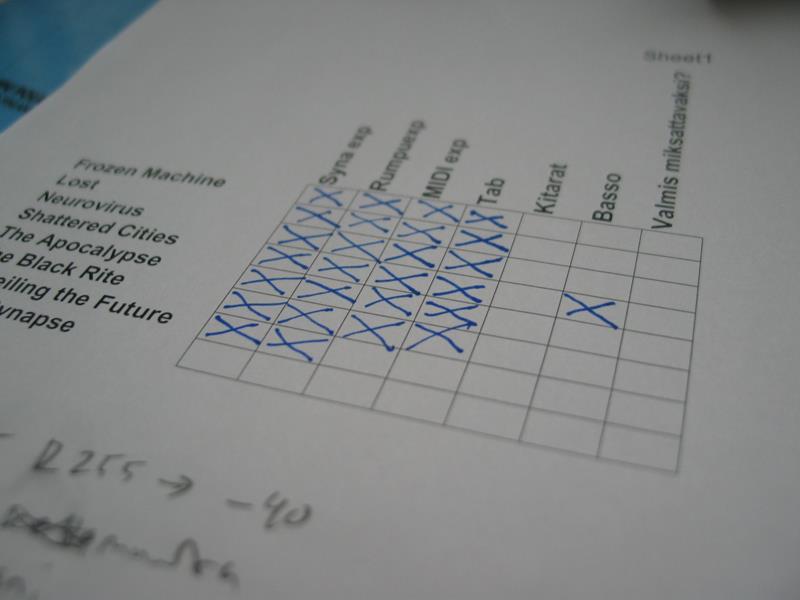 Sheet1
Syna exp
Rumpuexp
MIDI exp
Tab
Kitarat
Basso
Valmis miksattavaksi?
Frozen Machine
Lost
Neurovirus
Shattered Cities
The Apocalypse
e Black Rite
eiling the Future
ynapse
R255 → -40